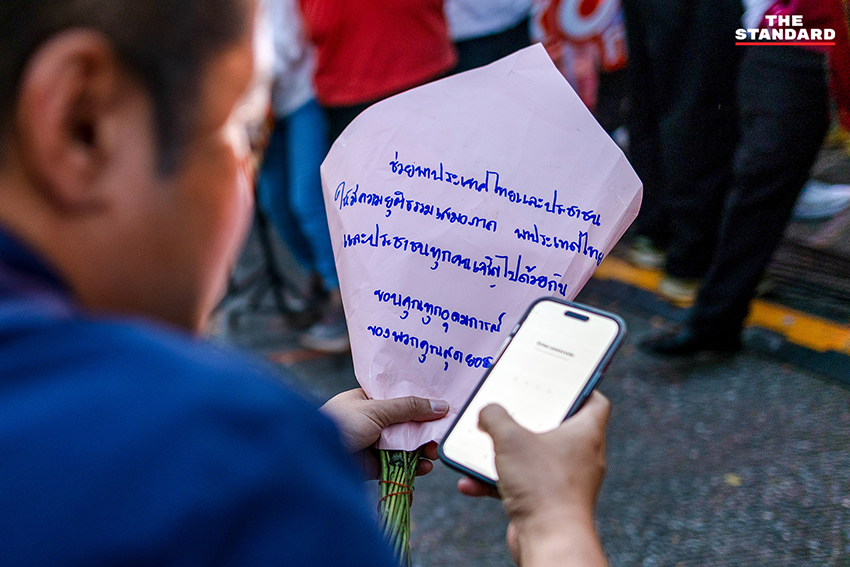 THE
STANDARD
ช่วยพาประเทศไทยและประชาชน
ให้มีความยุติธรรมเสมอภาค พาประเทศไทย
และประชาชนทุกคนเจริญไปด้วยกัน
ขอบคุณทุกอุดมการณ์
ของพวกคุณสุดยอด